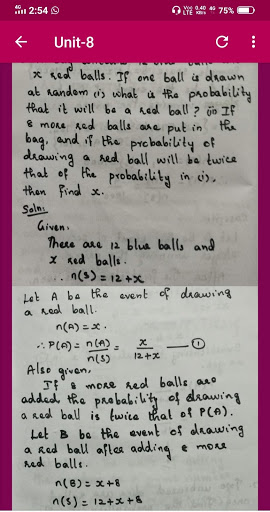 2:54
0.40 KB/s
VoLTE
4G
75%
Unit-8
x red balls. If one ball is drawn
at random (i) what is the probability
that it will be a red ball? (ii) If
8 more red balls are put in the
bag, and if the probability of
drawing a red ball will be twice
that of the probability in (i),
then find x.
Soln:
Given,
There are 12 blue balls and
x red balls.
∴ n(S) = 12+x
Let A be the event of drawing
a red ball.
n(A) = x.
∴ P(A) = n(A)/n(S) = x/12+x — ①
Also given,
If 8 more red balls are
added the probability of drawing
a red ball is twice that of P(A).
Let B be the event of drawing
a red ball after adding 8 more
red balls.
n(B) = x+8
n(S) = 12+x+8